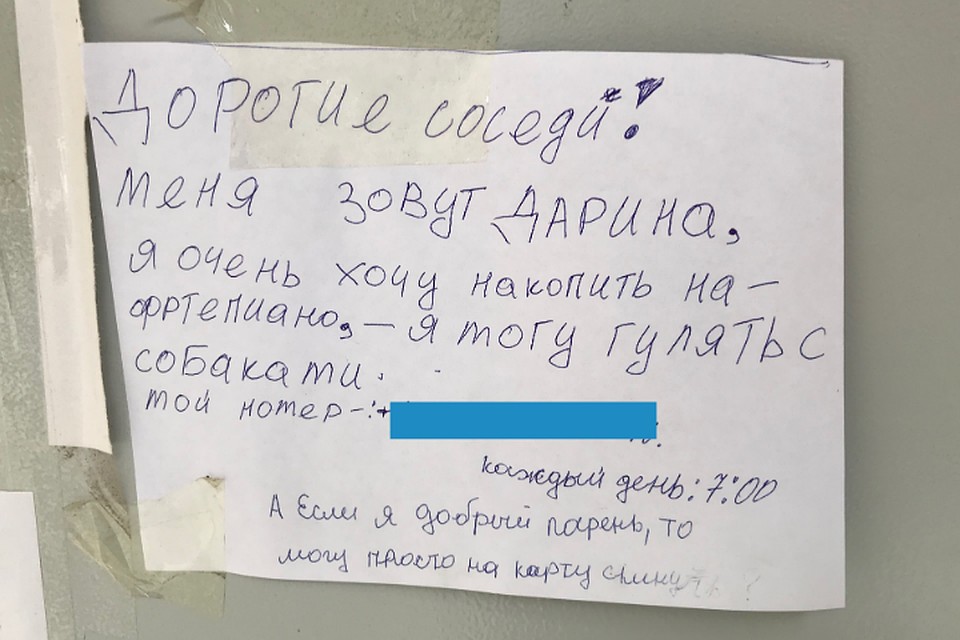 Дорогие соседи!
меня зовут Дарина,
я очень хочу накопить на-
фртепиано, - я могу гулять с
собаками.
мой номер-:+
каждый день: 7:00
А Если я добрый парень, то
могу просто на карту скинуть?